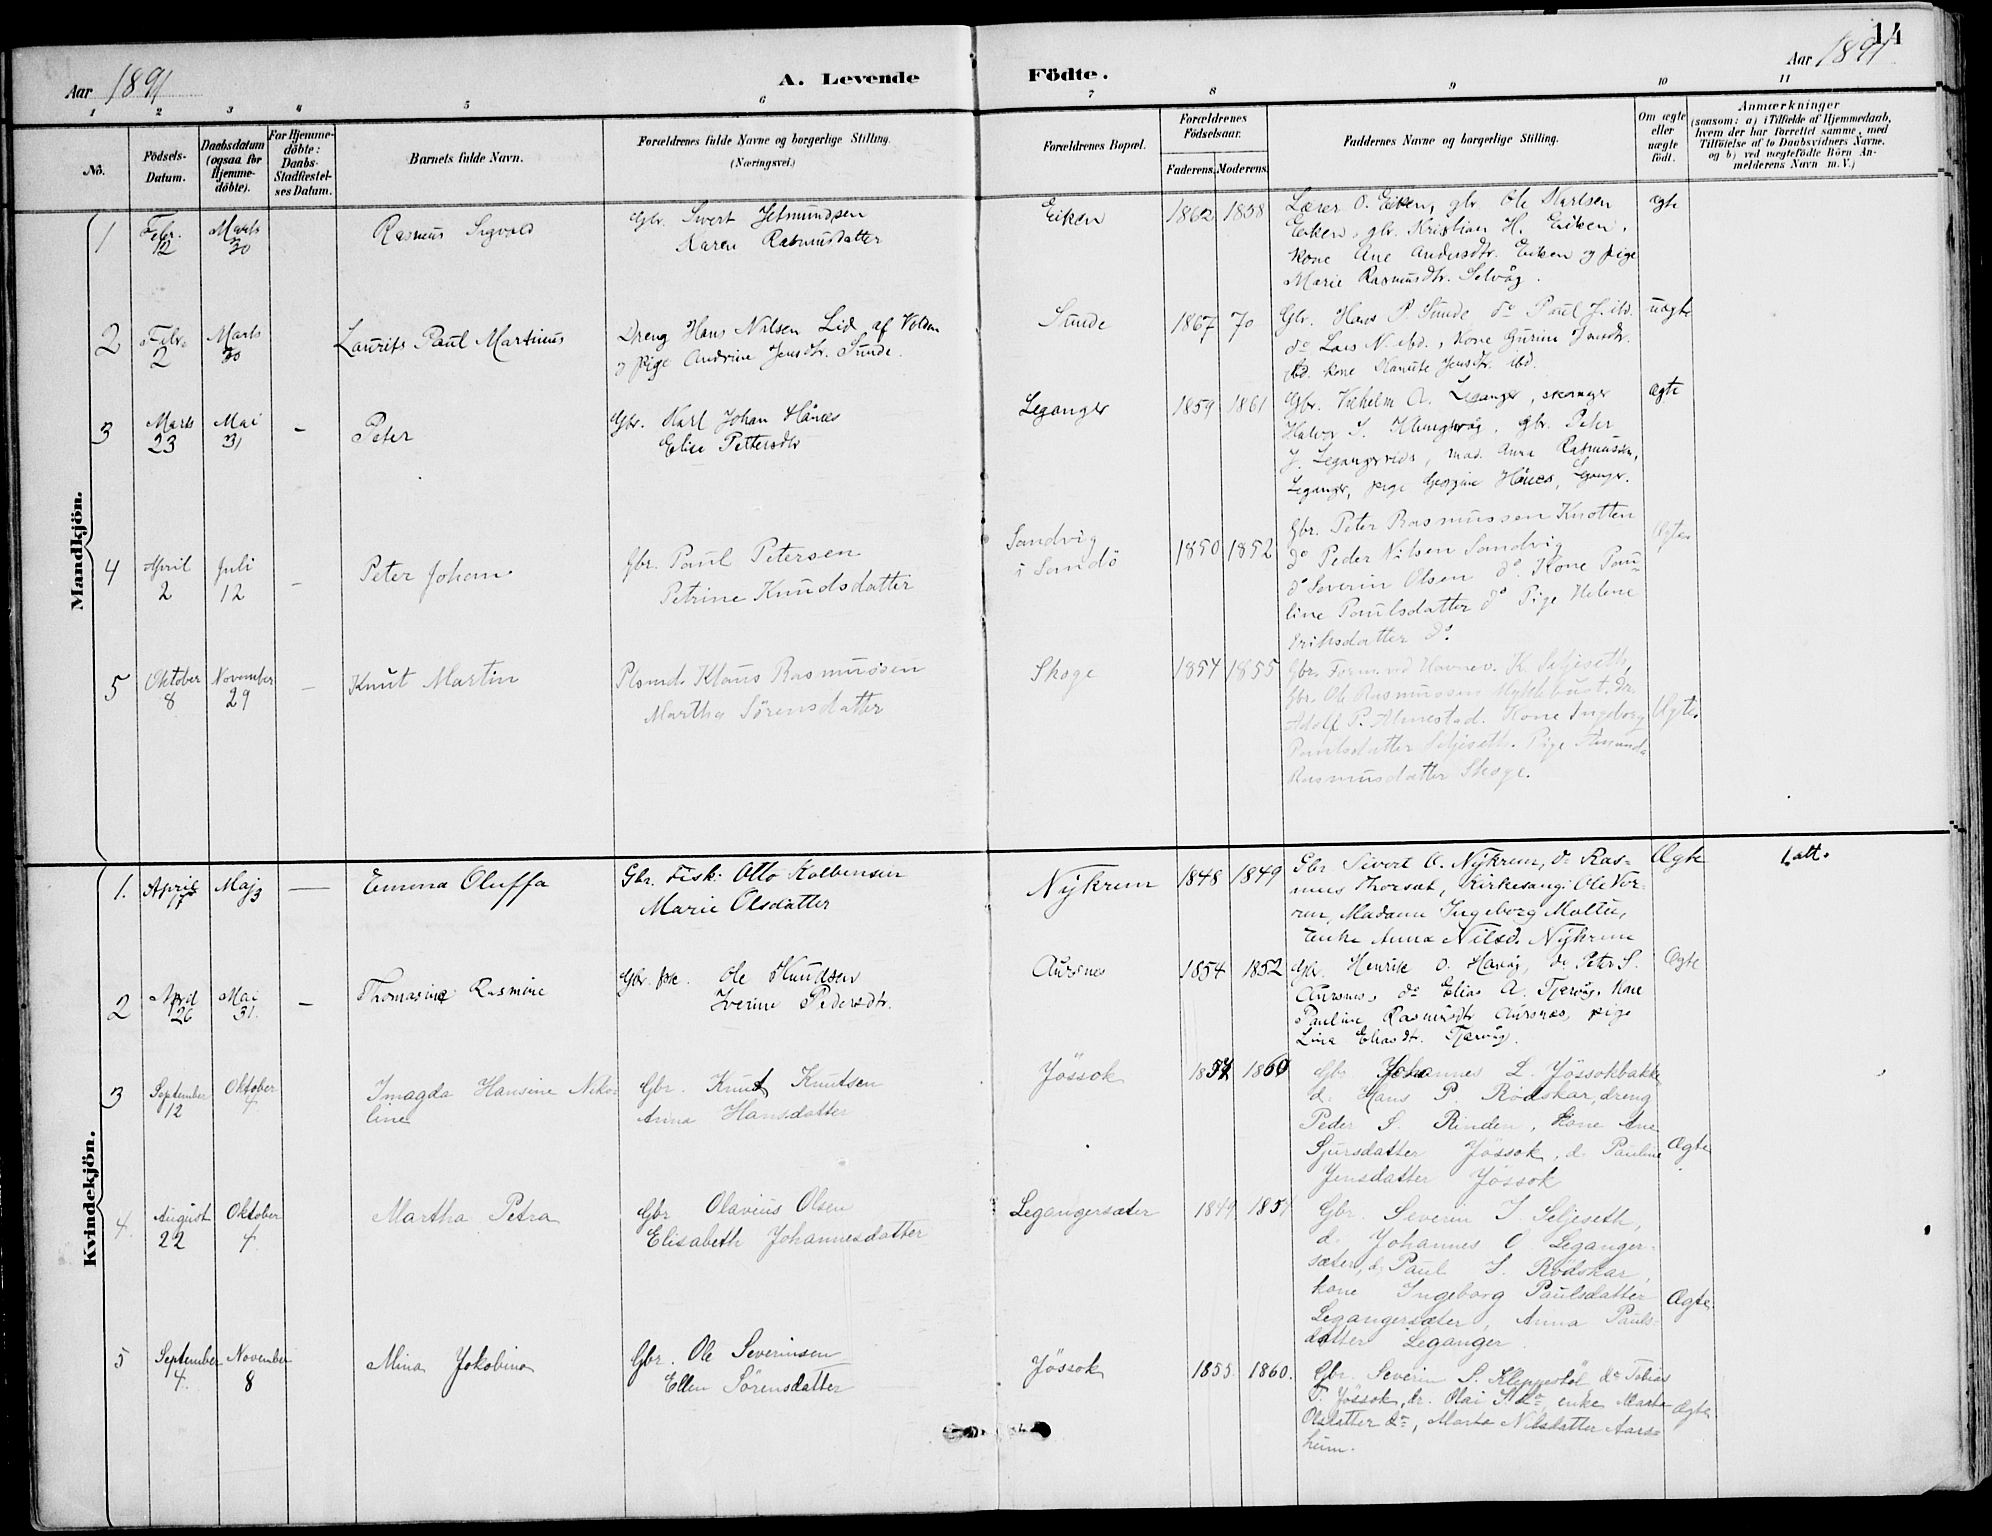 14
Aar 1891
A. Levende Födte.
Aar 1891
1 2 3 4 5 6 7 8 9 10 11
No.
Födsels-Datum.
Daabsdatum (ogsaa for Hjemme-döbte).
For Hjemme-döbte: Daabs-Stadfæstel-ses Datum.
Barnets fulde Navn.
Forældrenes fulde Navne og borgerlige Stilling.
(Næringsvei.)
Forældrenes Bopæl.
Forældrenes Födselsaar.
Faderens. Moderens.
Faddernes Navne og borgerlige Stilling.
Om ægte eller uægte födt.
Anmærkninger
(saasom: a) i Tilfælde af Hjemmedaab,
hvem der har forrettet samme, med
Tilföielse af to Daabsvidners Navne.
og b) ved uægtefödte Börn An-
melderens Navn m. V.)
Mandkjön.
1 Febr. 12 Marts 30 Rasmus Sigvald
Gbr. Sivert Jetmundsen
Karen Rasmusdatter
Eiken 1862 1858
Lærer O. Eiken, gbr. Ole Karlsen
Eiken, gbr. Kristian H. Eiken,
kone Ane Andersdtr. Eiken og pige
Marie Rasmusdtr. Selvåg.
ægte
2 Febr. 2 Marts 30 Laurits Paul Martinus
Dreng Hans Nilsen Lid af Volden
og pige Andrine Jensdtr. Sunde.
Sunde 1867 70
Gbr. Hans P. Sunde do Paul J. ibd.
do Lars N. ibd., kone Gurine Jensdtr.
ibd. kone Hanute Jensdtr. ibd.
uægte
3 Marts 23 Mai 31 - Peter
Gbr. Karl Johan Hånæs
Elise Pettersdtr
Leganger 1859 1861
Gbr. Vilhelm A. Leganger, skomager
Halvor S. Klungsvåg, gbr. Peter
J. Legangereide, mad. Anna Rasmussen,
Leganger, pige Georgine Hånæs, Leganger.
Ægte
4 April 2 Juli 12 - Peter Johan
Gbr. Paul Petersen
Petrine Knudsdatter
Sandvig
i Sandö
1850 1852
Gbr. Peter Rasmussen Knotten
do Peder Nilsen Sandvig
do Severin Olsen do. Kone Pau-
line Paulsdatter do Pige Helene
Eriksdatter do.
Ægte
5 Oktober 8 November 29 - Knut Martin
Plsmd. Klaus Rasmussen
Martha Sörensdatter
Skoge 1854 1855
Gbr. Form. ved Havnev. K. Seljeseth,
Gbr. Ole Rasmussen Myklebust. Dr.
Adolf P. Almestad. Kone Ingeborg
Paulsdatter Seljeseth. Pige Amanda
Rasmusdatter Skoge.
Ægte
Kvindekjön.
1. April 17 Maj 3 - Emma Oluffa
Gbr. Fisk. Otto Kolbensen
Marie Olsdatter
Nykrem 1848 1849
Gbr Sivert O. Nykrem, do Ras-
mus Thorsæt, Kirkesang. Ole Vor-
ren, Madame Ingeborg Moltu,
Enke Anna Nilsd. Nykrem
Ægte
1 att.
2 April 26 Mai 31. - Thomasine Rasmine
Gbr. fsk. Ole Knudsen
Iverine Pedersdtr.
Aursnes 1854 1852
Gbr. Henrik O. Havåg, do Peter S.
Aursnes, do Elias A. Tjervåg, Kone
Pauline Rasmusdtr Aursnes, pige
Lina Eliasdtr. Tjervåg.
Ægte
3 September 12 Oktober 4 Imagda Hansine Niko-
line
Gbr. Knut Knutsen
Anna Hansdatter
Jössok 1854 1860
Gbr Johannes L. Jössokbakke
d. Hans P. Rödskar, dreng
Peder S. Rinden, kone Ane
Sjursdatter Jössok, d. Pauline
Jensdatter Jössok
Ægte
4. August 22 Oktober 4. Martha Petra
Gbr Olavius Olsen
Elisabeth Johannesdatter
Legangersæter 1849 1851
Gbr Severin J. Seljeseth,
d. Johannes O. Leganger-
sæter, d. Paul S. Rödskar,
kone Ingeborg Paulsdatter
Legangersæter, Anna Pauls-
datter Leganger.
Ægte.
5 September 4. November 8 Mina Jokobina
Gbr. Ole Severinsen
Ellen Sörensdatter
Jössok 1855. 1860.
Gbr. Severin S. Kleppestöl do Tobias
T. Jössok, dr. Olai S. do, enke Marta
Olsdatter do, Marta Nilsdatter Aars-
heim.
Ægte